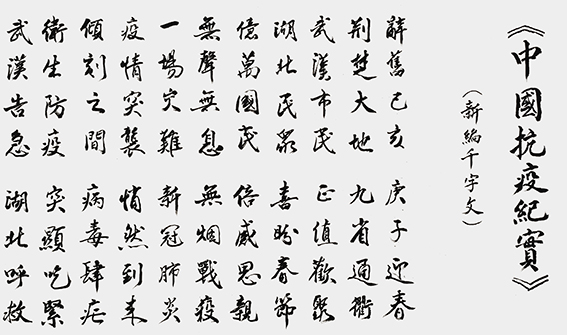 《中國抗疫紀實》
（新編千字文）
辭舊己亥 庚子迎春
荆楚大地 九省通衢
武漢市民 正值歡聚
湖北民眾 喜盼春節
億萬國民 倍感思親
無聲無息 無烟戰疫
一場灾難 新冠肺炎
疫情突襲 悄然到来
傾刻之間 病毒肆疟
衛生防疫 突顯吃緊
武漢告急 湖北呼救